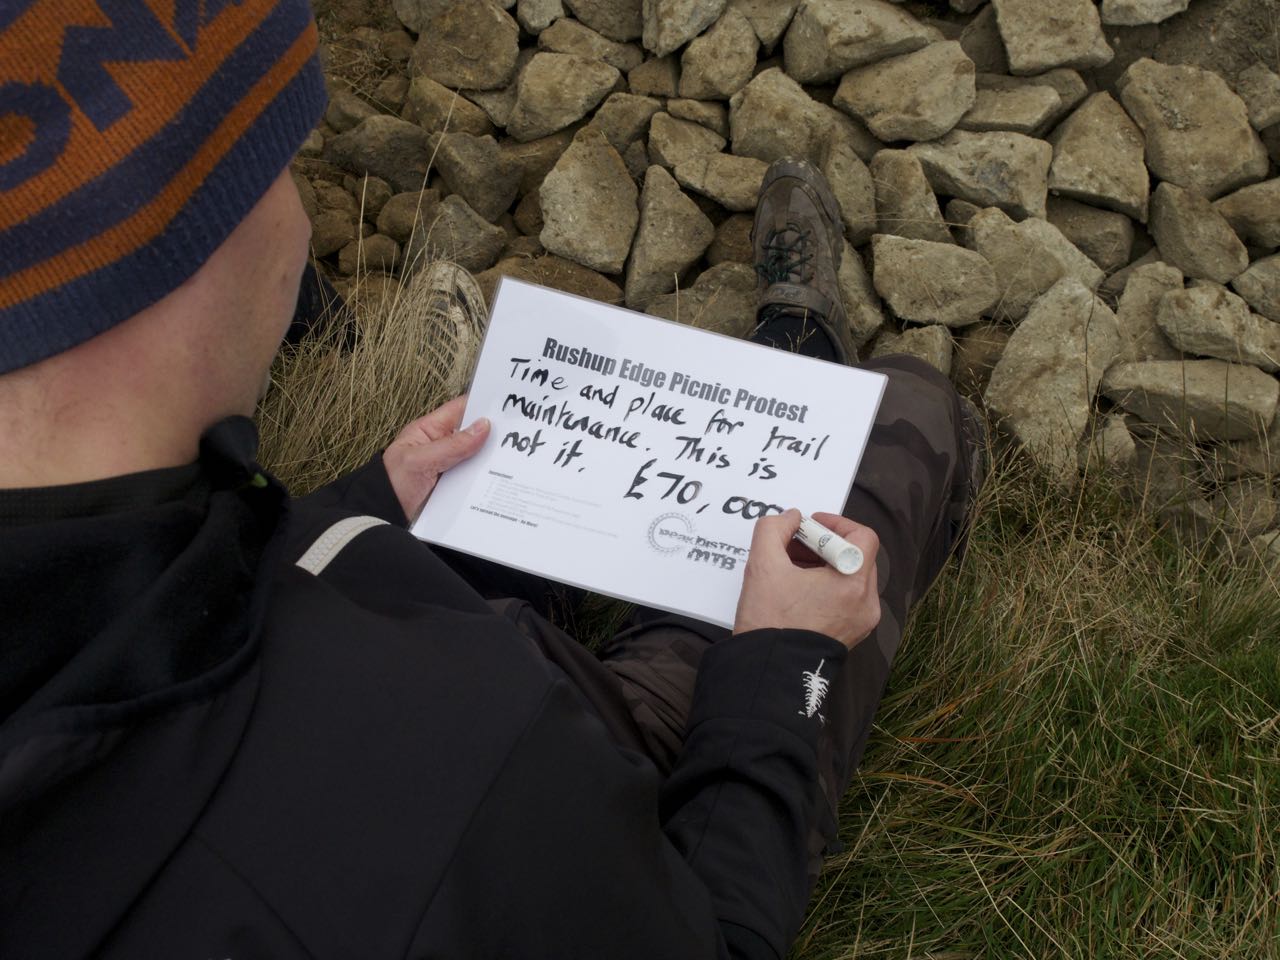 Rushup Edge Picnic Protest
Time and place for trail
maintenance. This is
not it. £70,000
Let's spread the message - No More!
Peak District
MTB